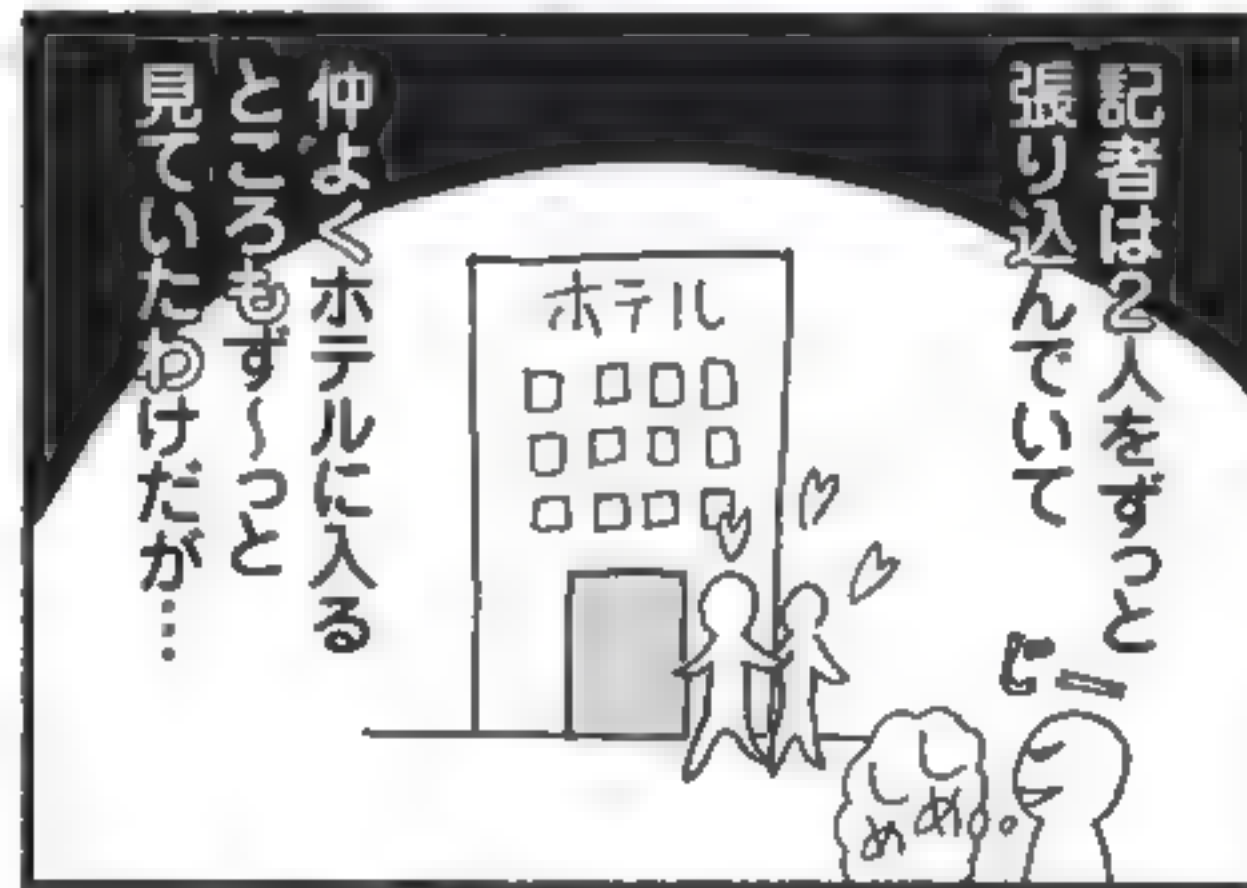 記者は2人をずっと
張り込んでいて
ホテル
仲よくホテルに入る
ところもずーっと
見ていたわけだが…
しめ
しめ